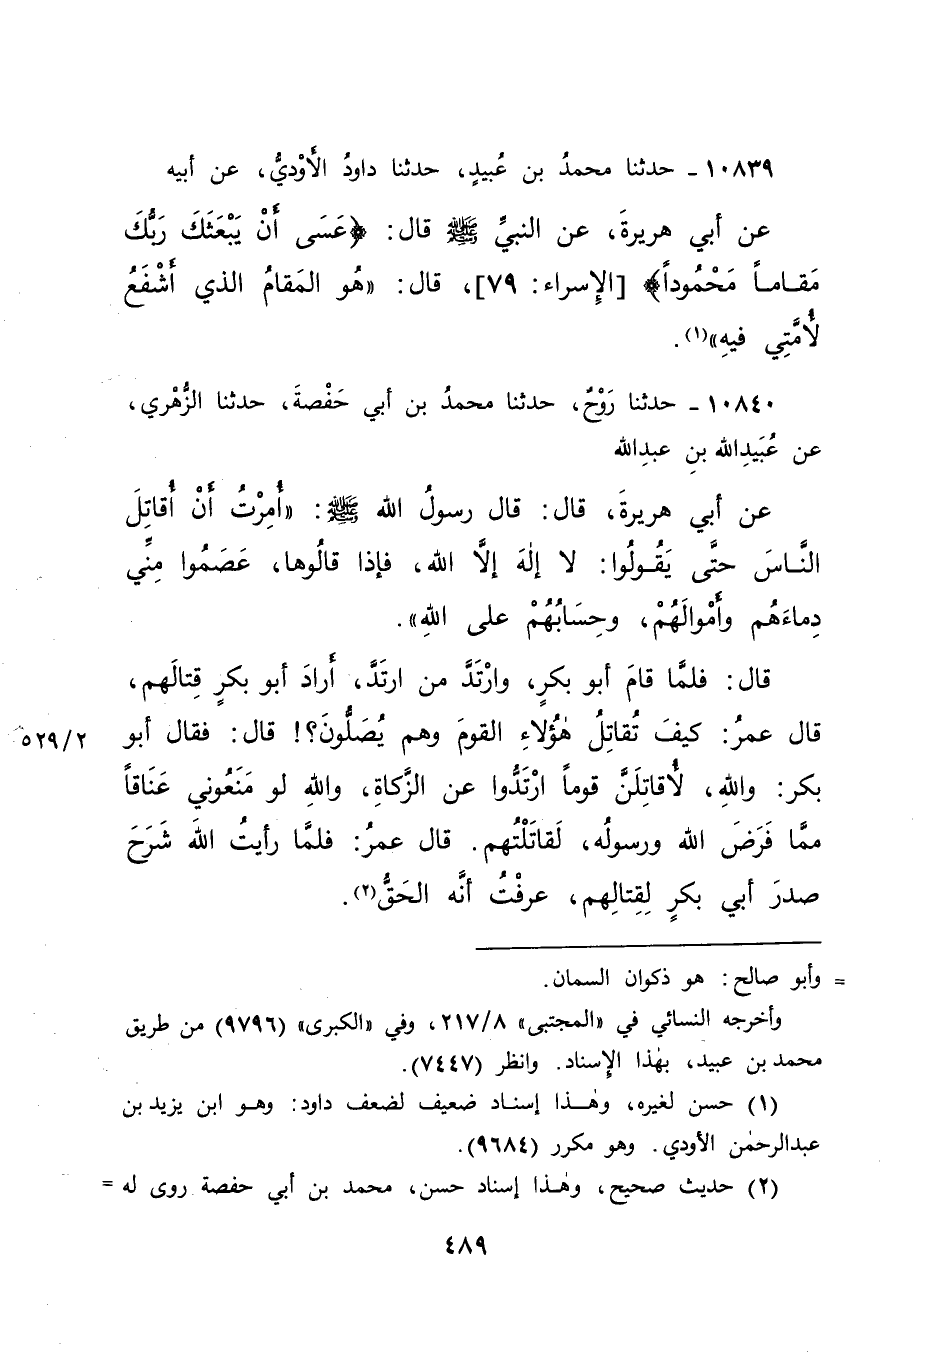 ١٠٨٣٩ ـ حدثنا محمدُ بن عُبيدٍ، حدثنا داودُ الأَوْديُّ، عن أبيه
عن أبي هريرةَ، عن النبيِّ ﷺ قال: ﴿عَسَى أَنْ يَبْعَثَكَ رَبُّكَ
مَقاماً مَحْمُوداً﴾ [الإسراء: ٧٩]، قال: «هُو المَقامُ الذي أَشْفَعُ
لأُمَّتِي فيهِ»(١).
١٠٨٤٠ ـ حدثنا رَوْحٌ، حدثنا محمدُ بن أبي حَفْصةَ، حدثنا الزُّهْري،
عن عُبَيدِالله بنِ عبدِالله
عن أبي هريرةَ، قال: قال رسولُ الله ﷺ: «أُمِرْتُ أَنْ أُقاتِلَ
النَّاسَ حتَّى يَقُولُوا: لا إلٰهَ إلَّا الله، فإذا قالُوها، عَصَمُوا مِنِّي
دِماءَهُم وأَمْوالَهُمْ، وحِسَابُهُمْ على اللهِ».
قال: فلمَّا قامَ أبو بكرٍ، وارْتَدَّ من ارتَدَّ، أَرادَ أبو بكرٍ قِتالَهم،
قال عمرُ: كيفَ تُقاتِلُ هٰؤُلاءِ القومَ وهم يُصَلُّونَ؟! قال: فقال أبو
٥٢٩/٢
بكر: واللهِ، لأُقاتِلَنَّ قوماً ارْتَدُّوا عن الزَّكاةِ، واللهِ لو مَنَعُوني عَنَاقاً
ممَّا فَرَضَ الله ورسولُه، لَقاتَلْتُهم. قال عمرُ: فلمَّا رأيتُ اللهَ شَرَحَ
صدرَ أبي بكرٍ لِقِتالِهم، عرفْتُ أنَّه الحَقُّ(٢).
= وأبو صالح: هو ذكوان السمان.
وأخرجه النسائي في «المجتبى» ٢١٧/٨، وفي «الكبرى» (٩٧٩٦) من طريق
محمد بن عبيد، بهٰذا الإسناد. وانظر (٧٤٤٧).
(١) حسن لغيره، وهٰذا إسناد ضعيف لضعف داود: وهو ابن يزيد بن
عبدالرحمٰن الأودي. وهو مكرر (٩٦٨٤).
(٢) حديث صحيح، وهٰذا إسناد حسن، محمد بن أبي حفصة روى له =
٤٨٩